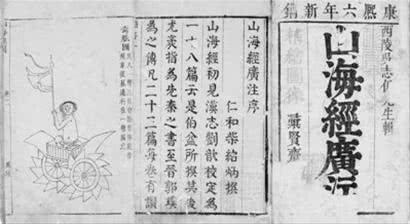 康熙六年新鐫
西陵吳志伊先生輯
山海經廣注
彙賢齋
山海經廣注序
仁和柴紹炳撰
山海經初見漢志劉歆校定為
一十八篇云是伯益所撰其後
尤袤指為先秦之書至晉郭璞
為之傳凡二十三篇每卷有讚
奇肱國